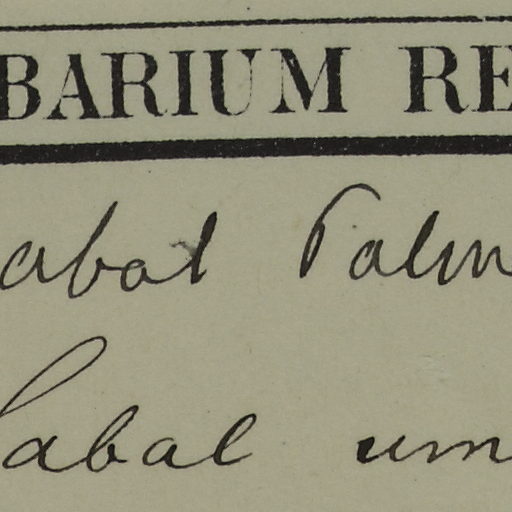 BARIUM RE
abal Palm
Sabal um